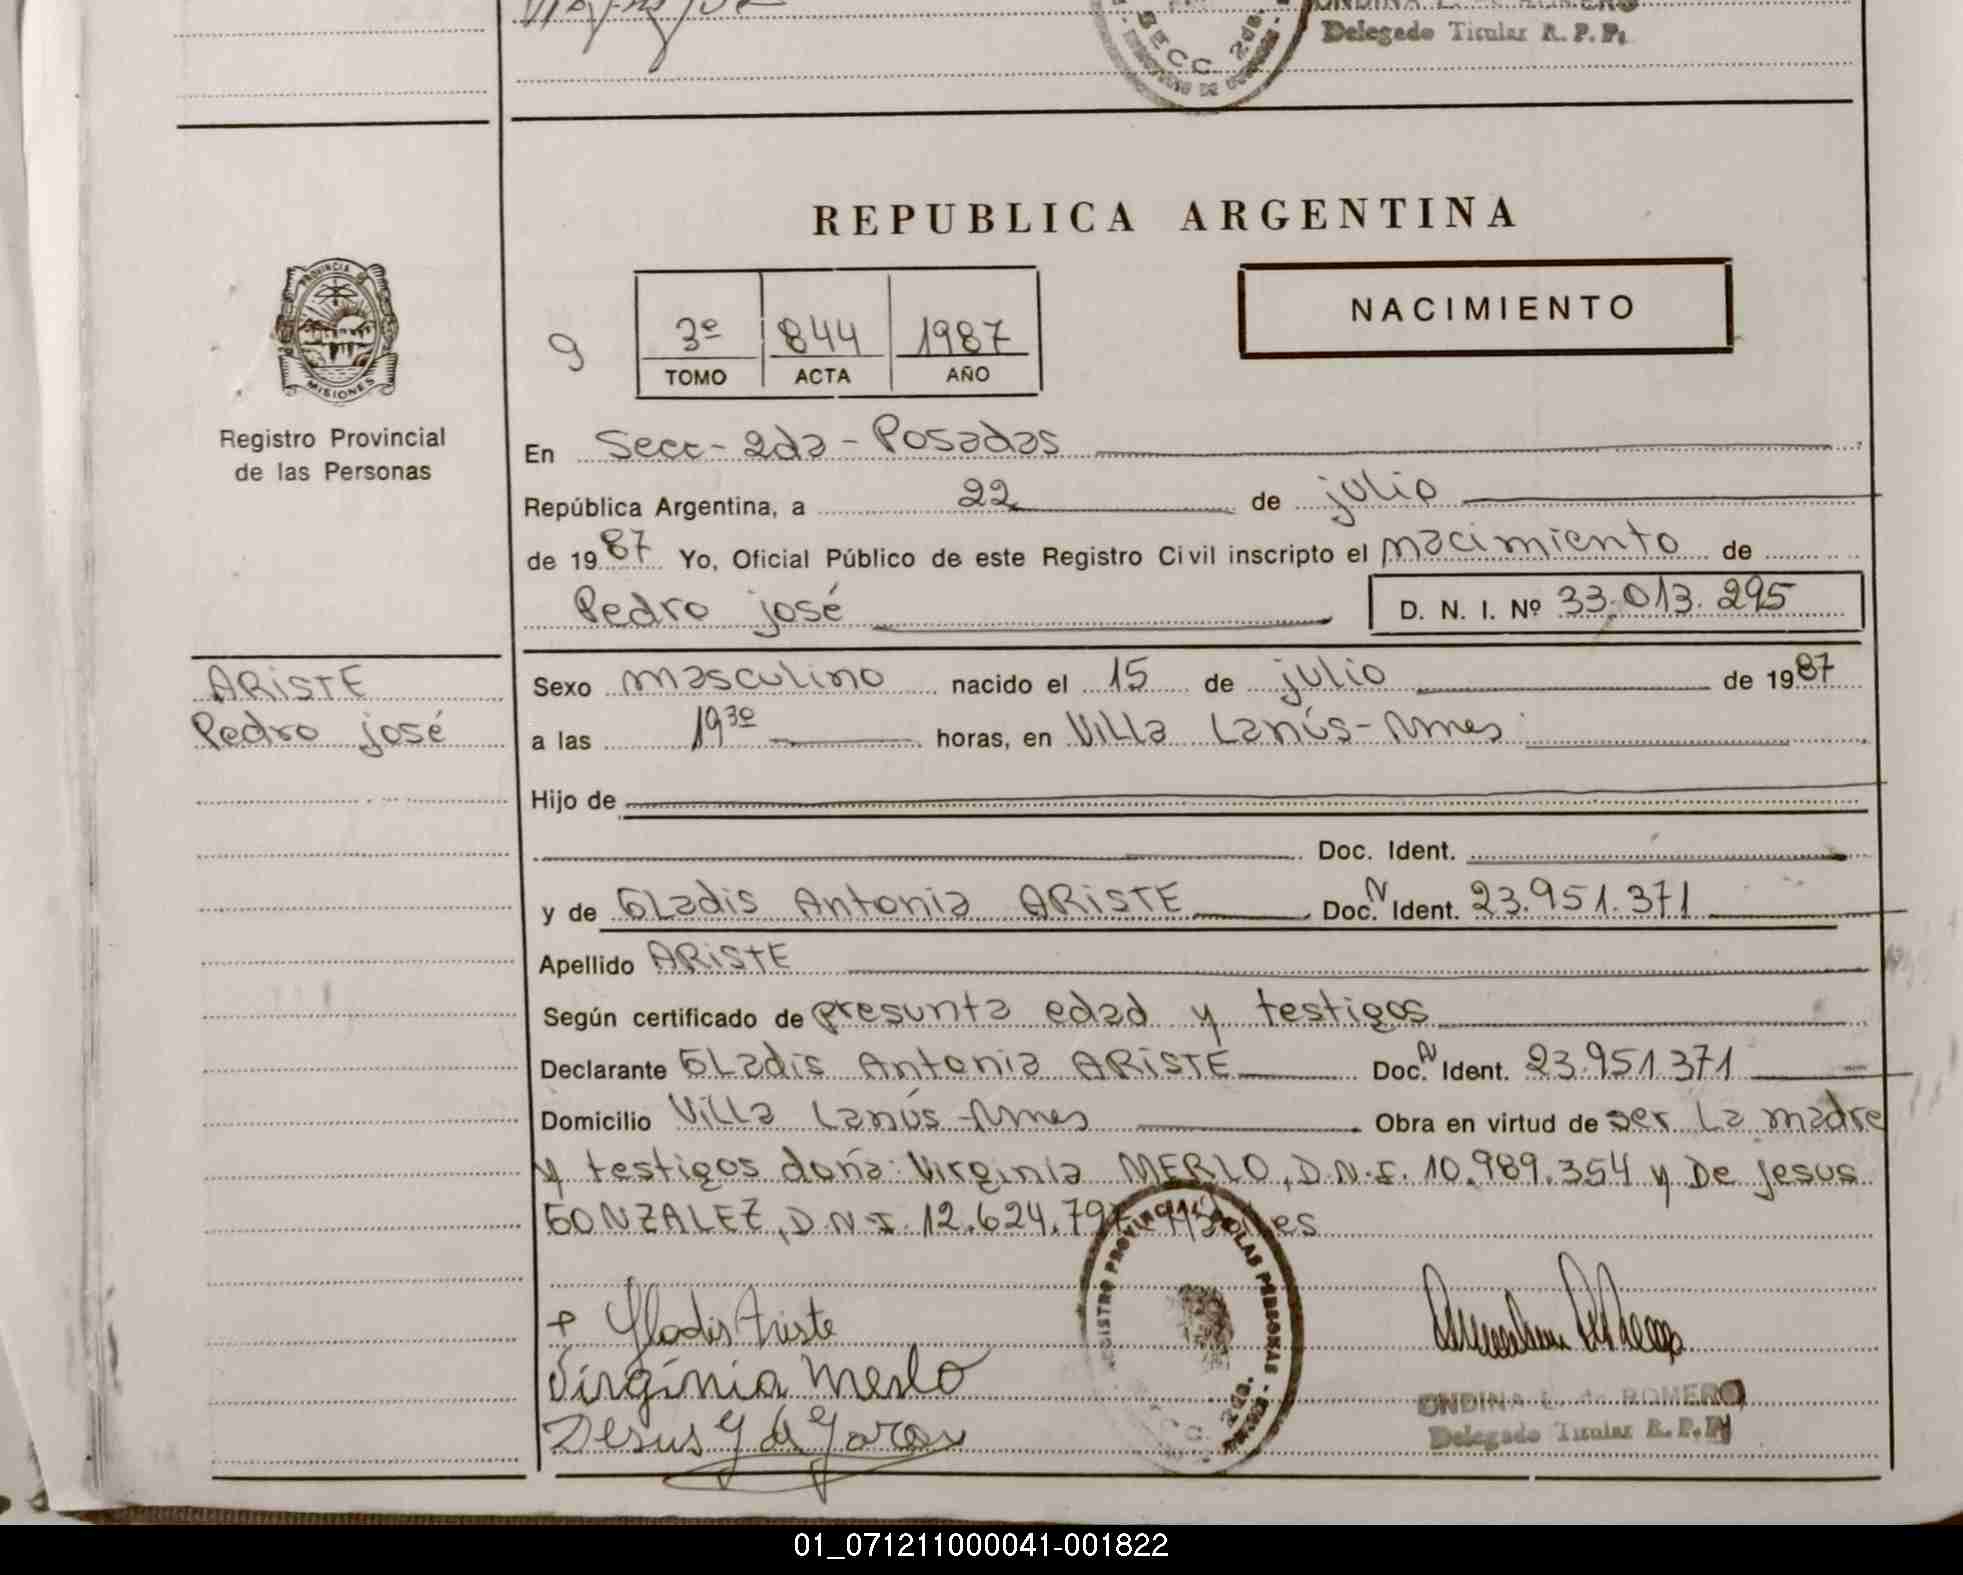 Delegado Titular R. P. P.
SECC. 2da.
REPUBLICA ARGENTINA
NACIMIENTO
PROVINCIA DE
MISIONES
Registro Provincial
de las Personas
9
3º 844 1987
TOMO ACTA AÑO
En Secc - 2da - Posadas
República Argentina, a 22 de julio
de 1987 Yo, Oficial Público de este Registro Civil inscripto el nacimiento de
Pedro josé D. N. I. Nº 33.013.295
ARISTE
Pedro josé
Sexo masculino nacido el 15 de julio de 1987
a las 19 30 horas, en Villa Lanús - Mnes
Hijo de
Doc. Ident.
y de Gladis Antonia ARISTE Doc. N Ident. 23.951.371
Apellido ARISTE
Según certificado de presunta edad y testigos
Declarante Gladis Antonia ARISTE Doc. N Ident. 23.951.371
Domicilio Villa Lanús - Mnes Obra en virtud de ser la madre
y testigos doña: Virginia MERLO, D.N.I. 10.989.354 y De jesus
GONZALEZ, D.N.I. 12.624.79
REGISTRO PROVINCIAL DE LAS PERSONAS
2da.
+ Gladis Ariste
Virginia Merlo
Jesus G de
ONDINA L. de ROMERO
Delegado Titular R. P. P.
01_071211000041-001822